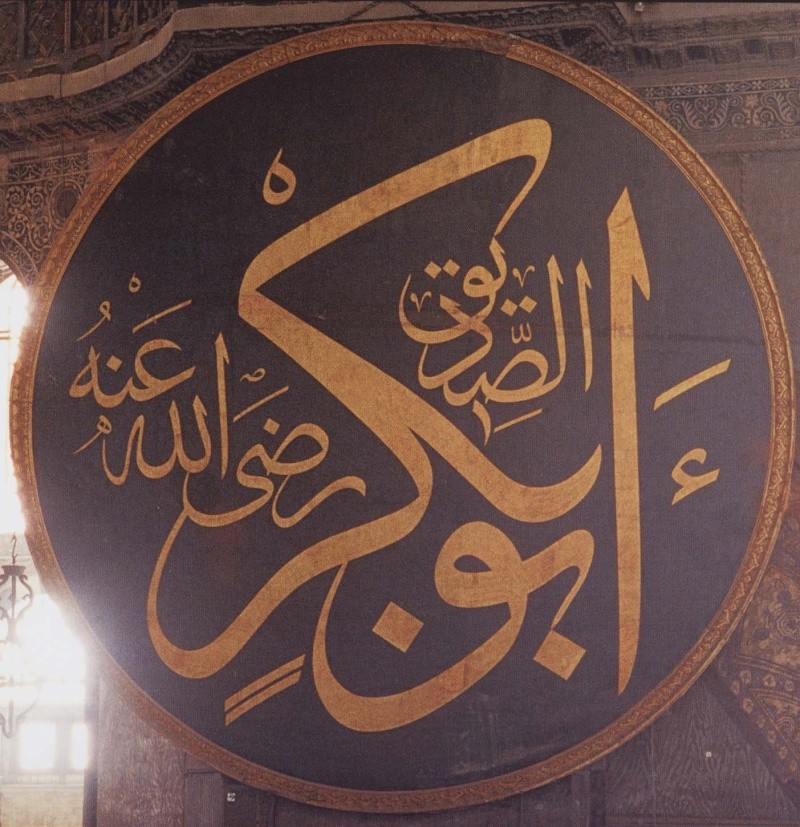 أَبو بكرٍ
الصِّديق
رضى الله عَنْهُ